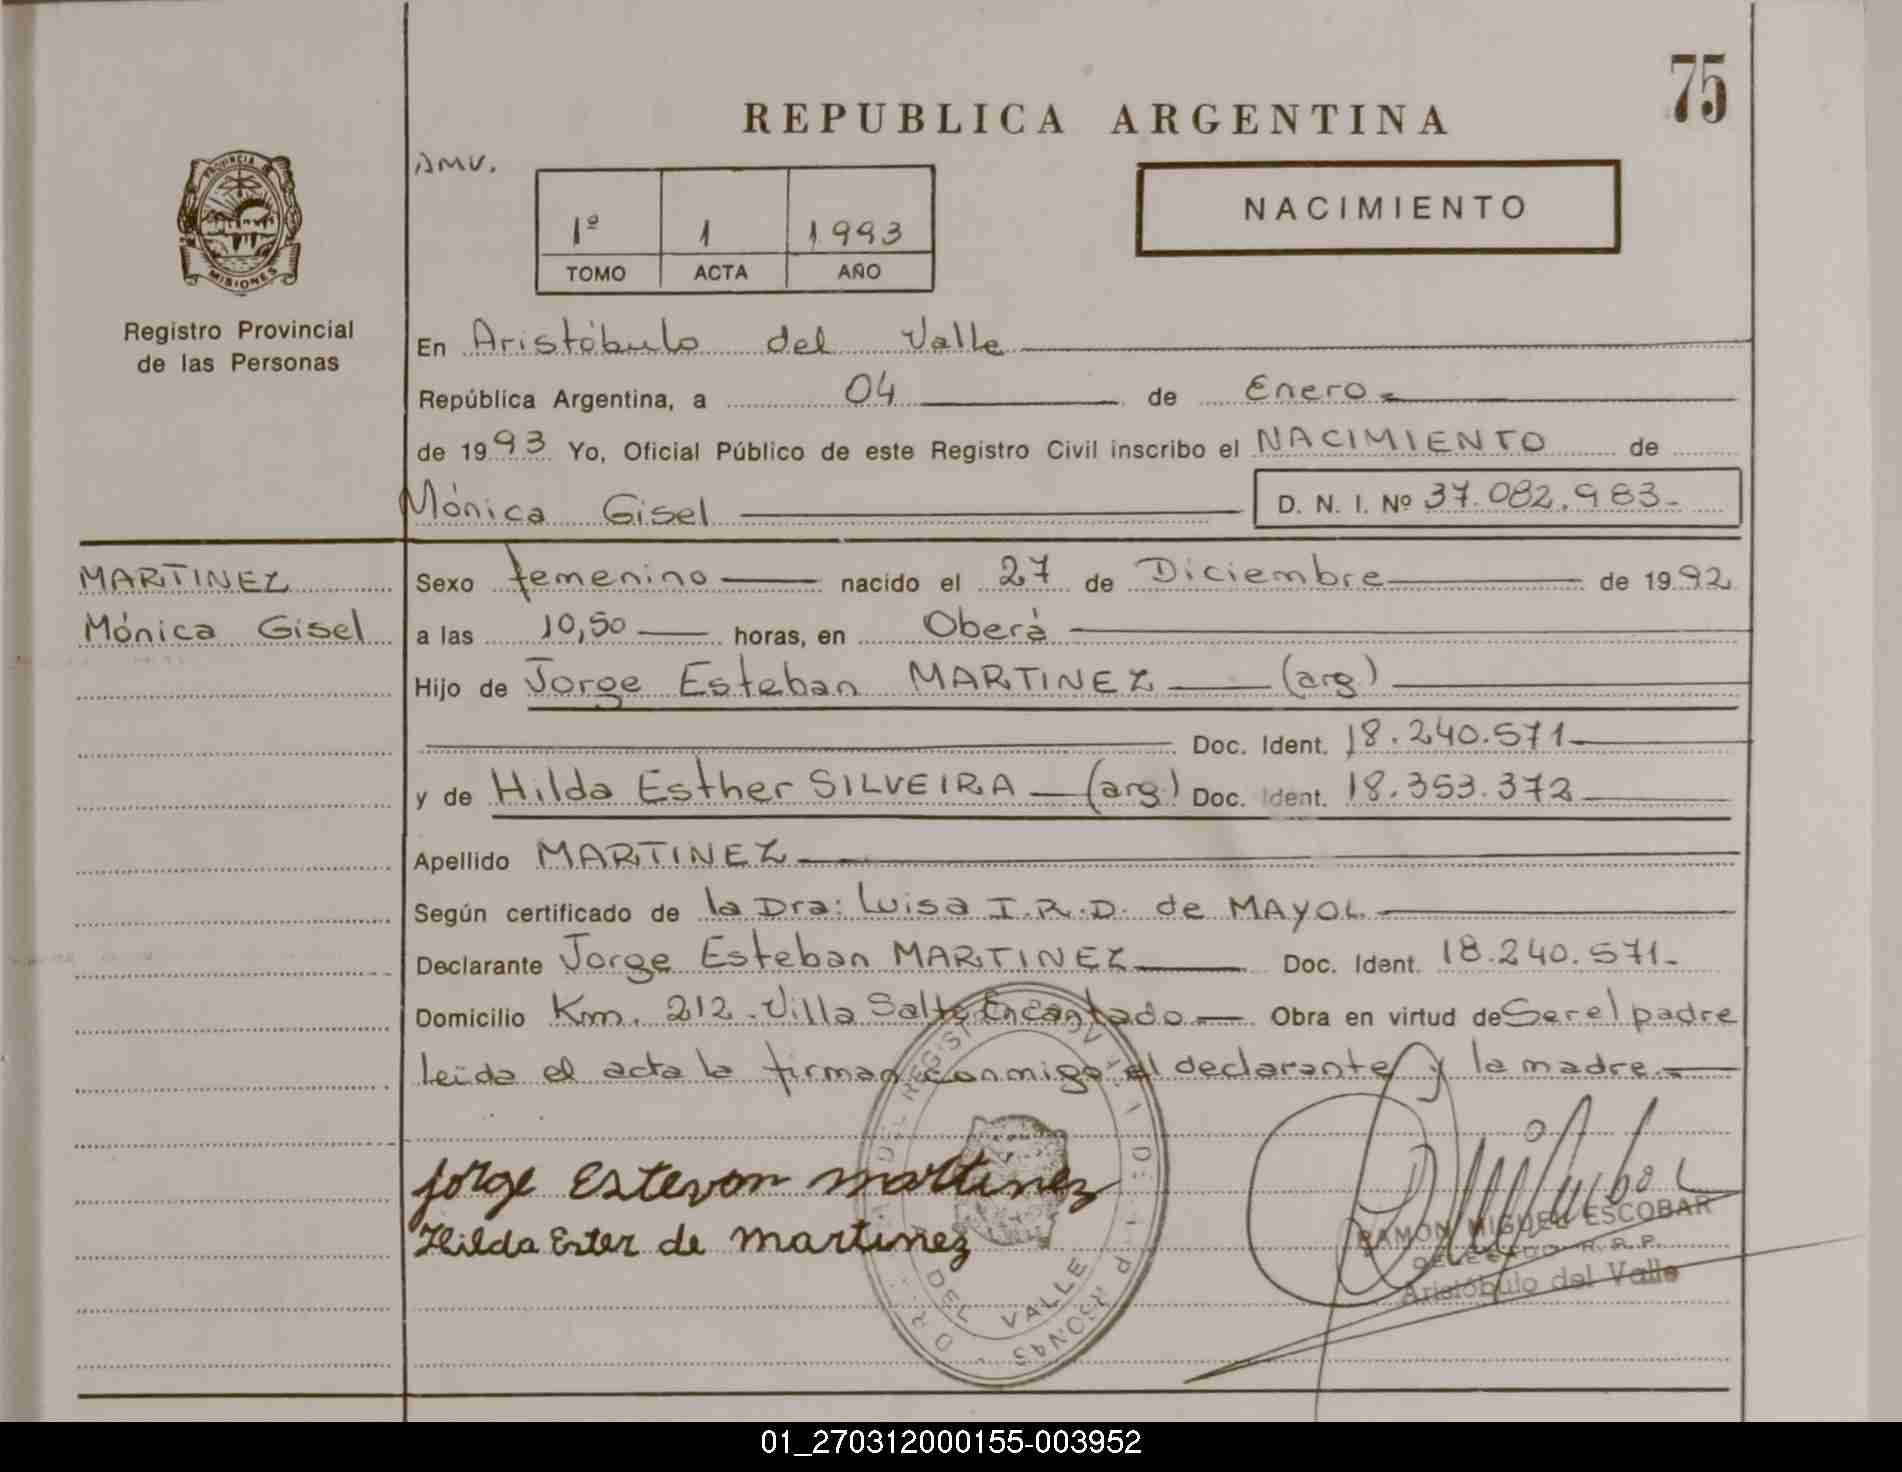 75
REPUBLICA ARGENTINA
AMV.
1º 1 1993
TOMO ACTA AÑO
NACIMIENTO
PROVINCIA
MISIONES
Registro Provincial
de las Personas
En Aristóbulo del Valle
República Argentina, a 04 de Enero
de 1993 Yo, Oficial Público de este Registro Civil inscribo el NACIMIENTO de
Mónica Gisel D. N. I. Nº 37.082.983-
MARTINEZ
Mónica Gisel
Sexo femenino nacido el 27 de Diciembre de 1992
a las 10,50 horas, en Oberá
Hijo de Jorge Esteban MARTINEZ (arg)
Doc. Ident. 18.240.571
y de Hilda Esther SILVEIRA (arg) Doc. Ident. 18.353.372
Apellido MARTINEZ
Según certificado de la Dra: Luisa I.R.D. de MAYOL
Declarante Jorge Esteban MARTINEZ Doc. Ident. 18.240.571-
Domicilio Km. 212 - Villa Salto Encantado Obra en virtud de Ser el padre
leida el acta la firman conmigo el declarante y la madre.
Jorge Estevan martinez
Hilda Ester de martinez
DEL VALLE
RAMON MIGUEL ESCOBAR
DELEGADO R.R.P.
Aristóbulo del Valle
01_270312000155-003952